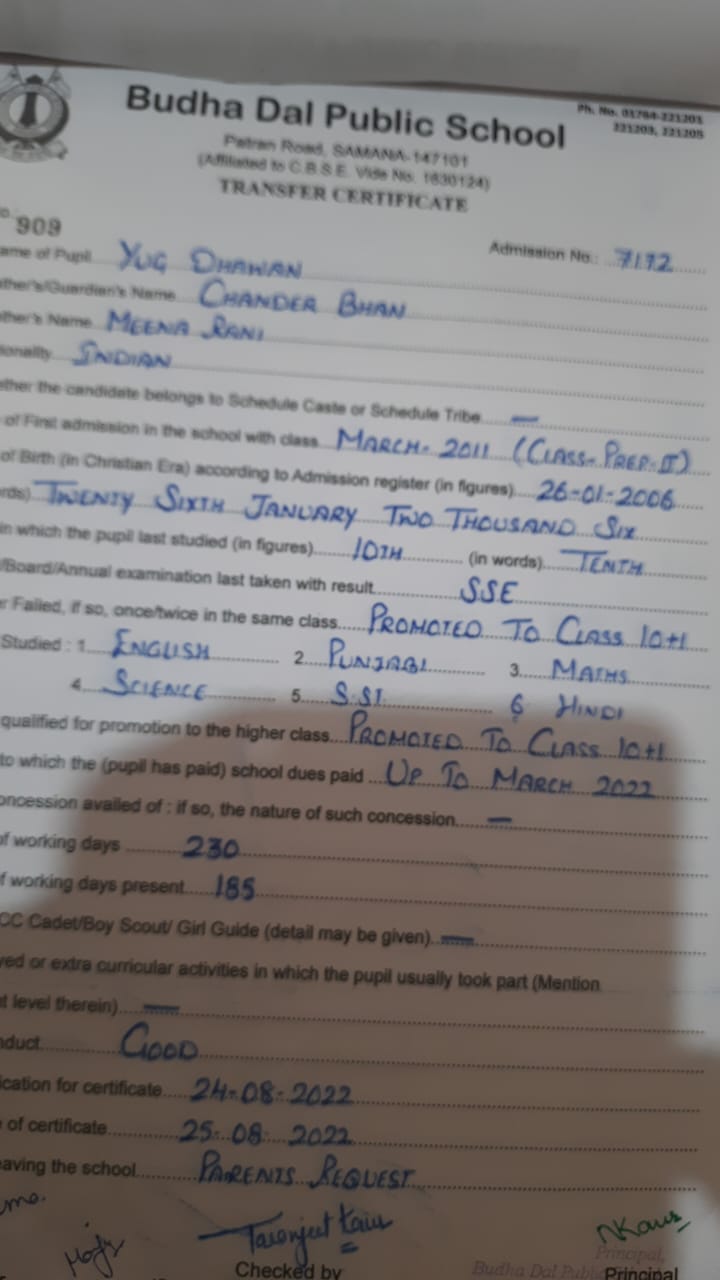 Budha Dal Public School
Ph. No. 01764-221201
221203, 221205
Patran Road, SAMANA-147101
(Affiliated to C.B.S.E. Vide No. 1630124)
TRANSFER CERTIFICATE
909
Admission No.: 7172
ame of Pupil YUG DHAWAN
ther's/Guardian's Name CHANDER BHAN
other's Name MEENA RANI
ionality INDIAN
ether the candidate belongs to Schedule Caste or Schedule Tribe —
of First admission in the school with class MARCH- 2011 (CLASS-PREP-II)
of Birth (in Christian Era) according to Admission register (in figures) 26-01-2006
rds) TWENTY SIXTH JANUARY TWO THOUSAND SIX
in which the pupil last studied (in figures) 10TH (in words) TENTH
/Board/Annual examination last taken with result SSE
r Failed, if so, once/twice in the same class PROMOTED TO CLASS 10+1
Studied : 1 ENGLISH 2 PUNJABI 3 MATHS
4 SCIENCE 5 S.ST 6 HINDI
qualified for promotion to the higher class PROMOTED TO CLASS 10+1
to which the (pupil has paid) school dues paid UP TO MARCH 2022
oncession availed of : if so, the nature of such concession —
of working days 230
f working days present 185
CC Cadet/Boy Scout/ Girl Guide (detail may be given) —
yed or extra curricular activities in which the pupil usually took part (Mention
t level therein) —
nduct GOOD
ication for certificate 24-08-2022
of certificate 25-08-2022
eaving the school PARENTS REQUEST
Taranjeet Kaur
NKaur
Principal,
Checked by
Budha Dal Public
Principal